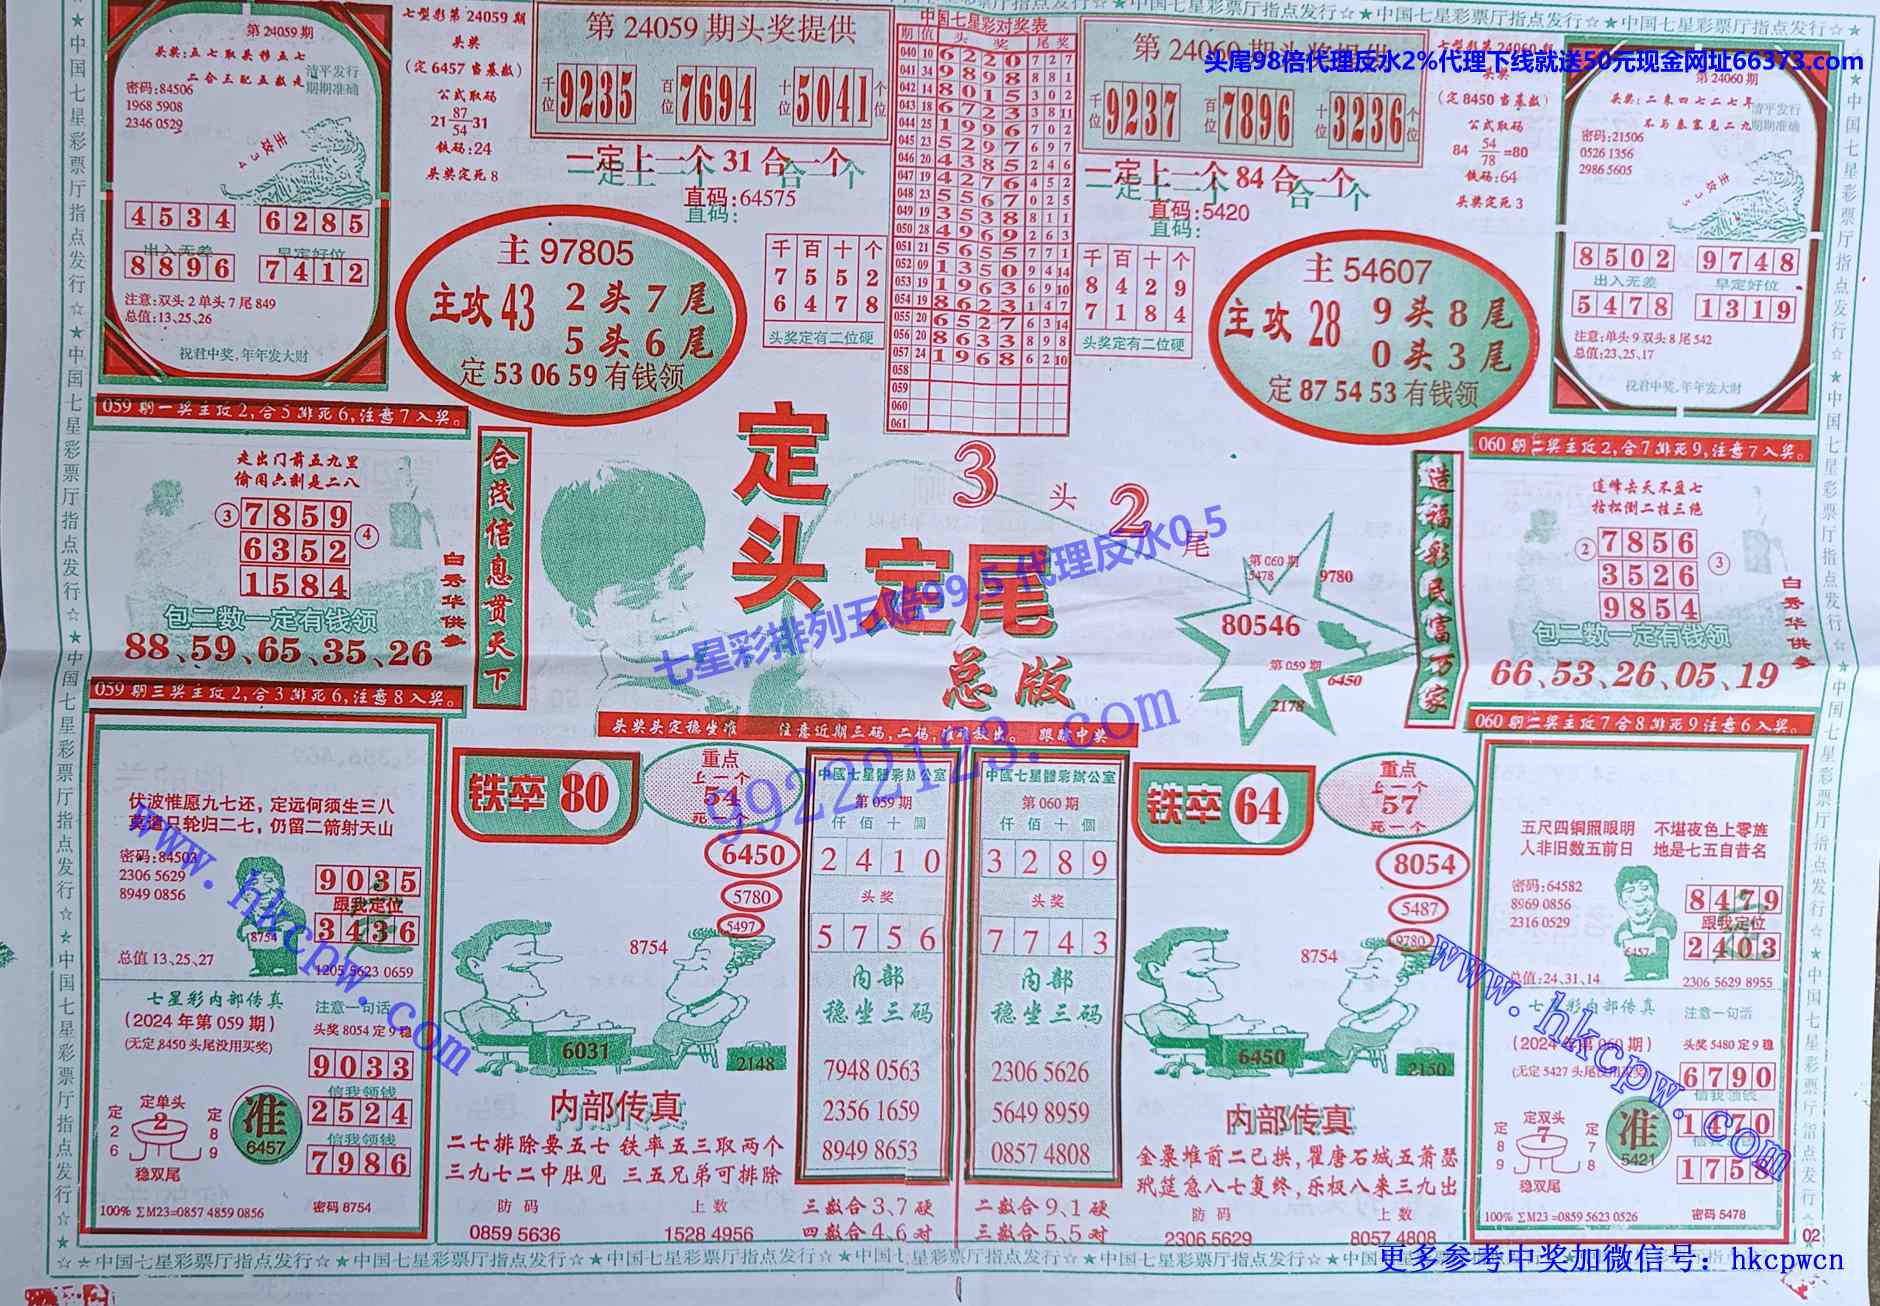 ☆★中国七星彩票厅指点发行☆★中国七星彩票厅指点发行☆★中国七星彩票厅指点发行☆
头尾98倍代理反水2%代理下线就送50元现金网址66373.com
第24059期
头奖:五七取头移五七
二合三配五数走
清平发行
期期准确
密码:84506
1968 5908
2346 0529
主攻34
4534 6285
出入无差 早定好位
8896 7412
注意:双头2单头7尾849
总值:13、25、26
祝君中奖,年年发大财
七型彩第24059期
头奖
(定6457当基数)
公式取码
21 87/54 31
铁码:24
头奖定死8
第24059期头奖提供
千位 9235 百位 7694 十位 5041 个位
一定上一个31合一个
直码:64575
直码:
主97805
主攻43 2头7尾
5头6尾
定53 06 59有钱领
千百十个
7552
6478
头奖定有二位硬
中国七星彩对奖表
期 值 头奖 尾奖
040 10 6220 7 2 7
041 34 9898 8 8 1
042 14 8015 3 0 2
043 18 6723 3 8 11
044 25 1996 7 0 2
045 23 5297 6 9 7
046 20 4385 2 4 6
047 19 4276 4 5 2
048 23 5567 0 2 5
049 19 3538 8 1 1
050 28 4969 2 6 3
051 21 5655 7 7 1
052 09 1350 9 4 14
053 19 1963 6 9 10
054 19 8623 1 4 7
055 20 6527 6 3 14
056 20 8633 8 9 8
057 24 1968 6 2 10
058
059
060
061
第24060期头奖提供
千位 9237 百位 7896 十位 3236 个位
一定上一个84合一个
直码:5420
直码:
千百十个
8429
7184
头奖定有二位硬
主54607
主攻28 9头8尾
0头3尾
定87 54 53有钱领
七型彩第24060期
头奖
(定8450当基数)
公式取码
84 54/78 =80
铁码:64
头奖定死3
第24060期
头奖:二来四七二七年
不与秦塞见二九
清平发行
期期准确
密码:21506
0526 1356
2986 5605
8502 9748
出入无差 早定好位
5478 1319
注意:单头9双头8尾542
总值:23、25、17
祝君中奖,年年发大财
059期一奖主攻2,合5排死6,注意7入奖。
走出门前五九里
偷闲六刻是二八
③ 7859
6352 ④
1584
包二数一定有钱领
88、59、65、35、26
白秀华供参
059期三奖主攻2,合3排死6,注意8入奖。
合茂信息贯天下
定头定尾
总版
3头2尾
七星彩排列五赔99.5代理反水0.5
99222123.com
头奖头定稳坐准 注意近期三码,二码,准可放出。 跟踪中奖
第060期
5478 9780
80546
第059期
6450
2178
造福彩民富万家
060期二奖主攻2,合7排死9,注意7入奖。
连峰去天不盈七
枯松倒二挂三绝
② 7856
3526 ③
9854
包二数一定有钱领
66、53、26、05、19
白秀华供参
060期二奖主攻7合8排死9注意6入奖。
伏波惟愿九七还,定远何须生三八
莫道只轮归二七,仍留二箭射天山
密码:84503
2306 5629
8949 0856
8754
总值13、25、27
9035
跟我定位
3436
1205 5623 0659
七星彩内部传真
(2024年第059期)
(无定8450头尾没用买奖)
注意一句话
头奖8054定9稳
9033
信我领钱
2524
信我领钱
7986
定26 定单头 2 定89
稳双尾
准
6457
100% ΣM23=0857 4859 0856
密码8754
铁卒80
重点
上一个
54
死一个
6450
5780
5497
8754
6031
2148
内部传真
二七排除要五七 铁率五三取两个
三九七二中肚见 三五兄弟可排除
防码 上数
0859 5636 1528 4956
中國七星體彩辦公室
第059期
仟佰十個
2410
头奖
5756
内部
稳坐三码
7948 0563
2356 1659
8949 8653
三数合3、7硬
四数合4、6对
中國七星體彩辦公室
第060期
仟佰十個
3289
头奖
7743
内部
稳坐三码
2306 5626
5649 8959
0857 4808
二数合9、1硬
三数合5、5对
铁卒64
重点
上一个
57
死一个
8054
5487
9780
8754
6450
2150
内部传真
金粟堆前二已拱,瞿唐石城五萧瑟
玳筵急八七复终,乐极八来三九出
防码 上数
2306 5629 8057 4808
五尺四铜照眼明 不堪夜色上零旌
人非旧数五前日 地是七五自昔名
密码:64582
8969 0856
2316 0529
6457
总值:24、31、14
8479
跟我定位
2403
2306 5629 8955
七星彩内部传真
(2024年第060期)
(无定5427头尾没用买奖)
注意一句话
头奖5480定9稳
6790
信我领钱
1470
信我领钱
1758
定89 定双头 7 定78
稳双尾
准
5421
100% ΣM23=0859 5623 0526
密码5478
02
www.hkcpw.com
www.hkcpw.com
☆★中国七星彩票厅指点发行☆★中国七星彩票厅指点发行☆★中国七星彩票厅指点发行☆
更多参考中奖加微信号：hkcpwcn